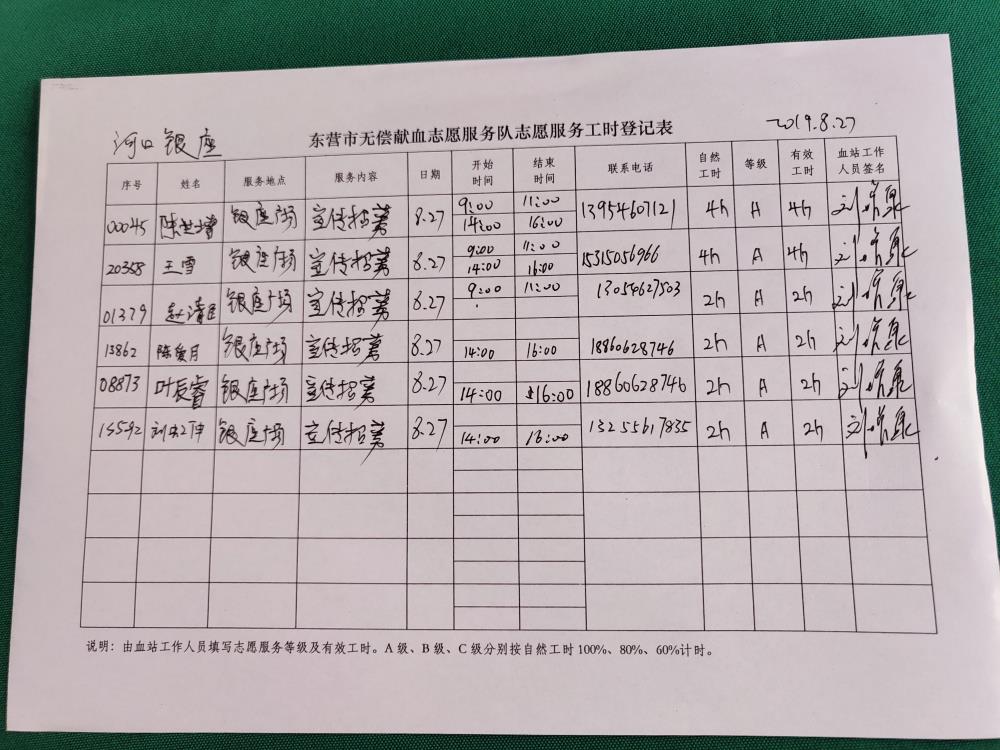 河口银座
东营市无偿献血志愿服务队志愿服务工时登记表
2019.8.27
序号 姓名 服务地点 服务内容 日期 开始时间 结束时间 联系电话 自然工时 等级 有效工时 血站工作人员签名
00045 银座广场 宣传招募 8.27 9:00 11:00 13954607121 4h A 4h
14:00 16:00
20358 王雪 银座广场 宣传招募 8.27 9:00 11:00 15315056966 4h A 4h
14:00 16:00
01379 银座广场 宣传招募 8.27 9:00 11:00 13054627503 2h A 2h
13862 陈爱月 银座广场 宣传招募 8.27 14:00 16:00 18860628746 2h A 2h
08873 叶辰睿 银座广场 宣传招募 8.27 14:00 16:00 18860628746 2h A 2h
银座广场 宣传招募 8.27 14:00 16:00 13255617835 2h A 2h
说明：由血站工作人员填写志愿服务等级及有效工时。A 级、B 级、C 级分别按自然工时 100%、80%、60%计时。